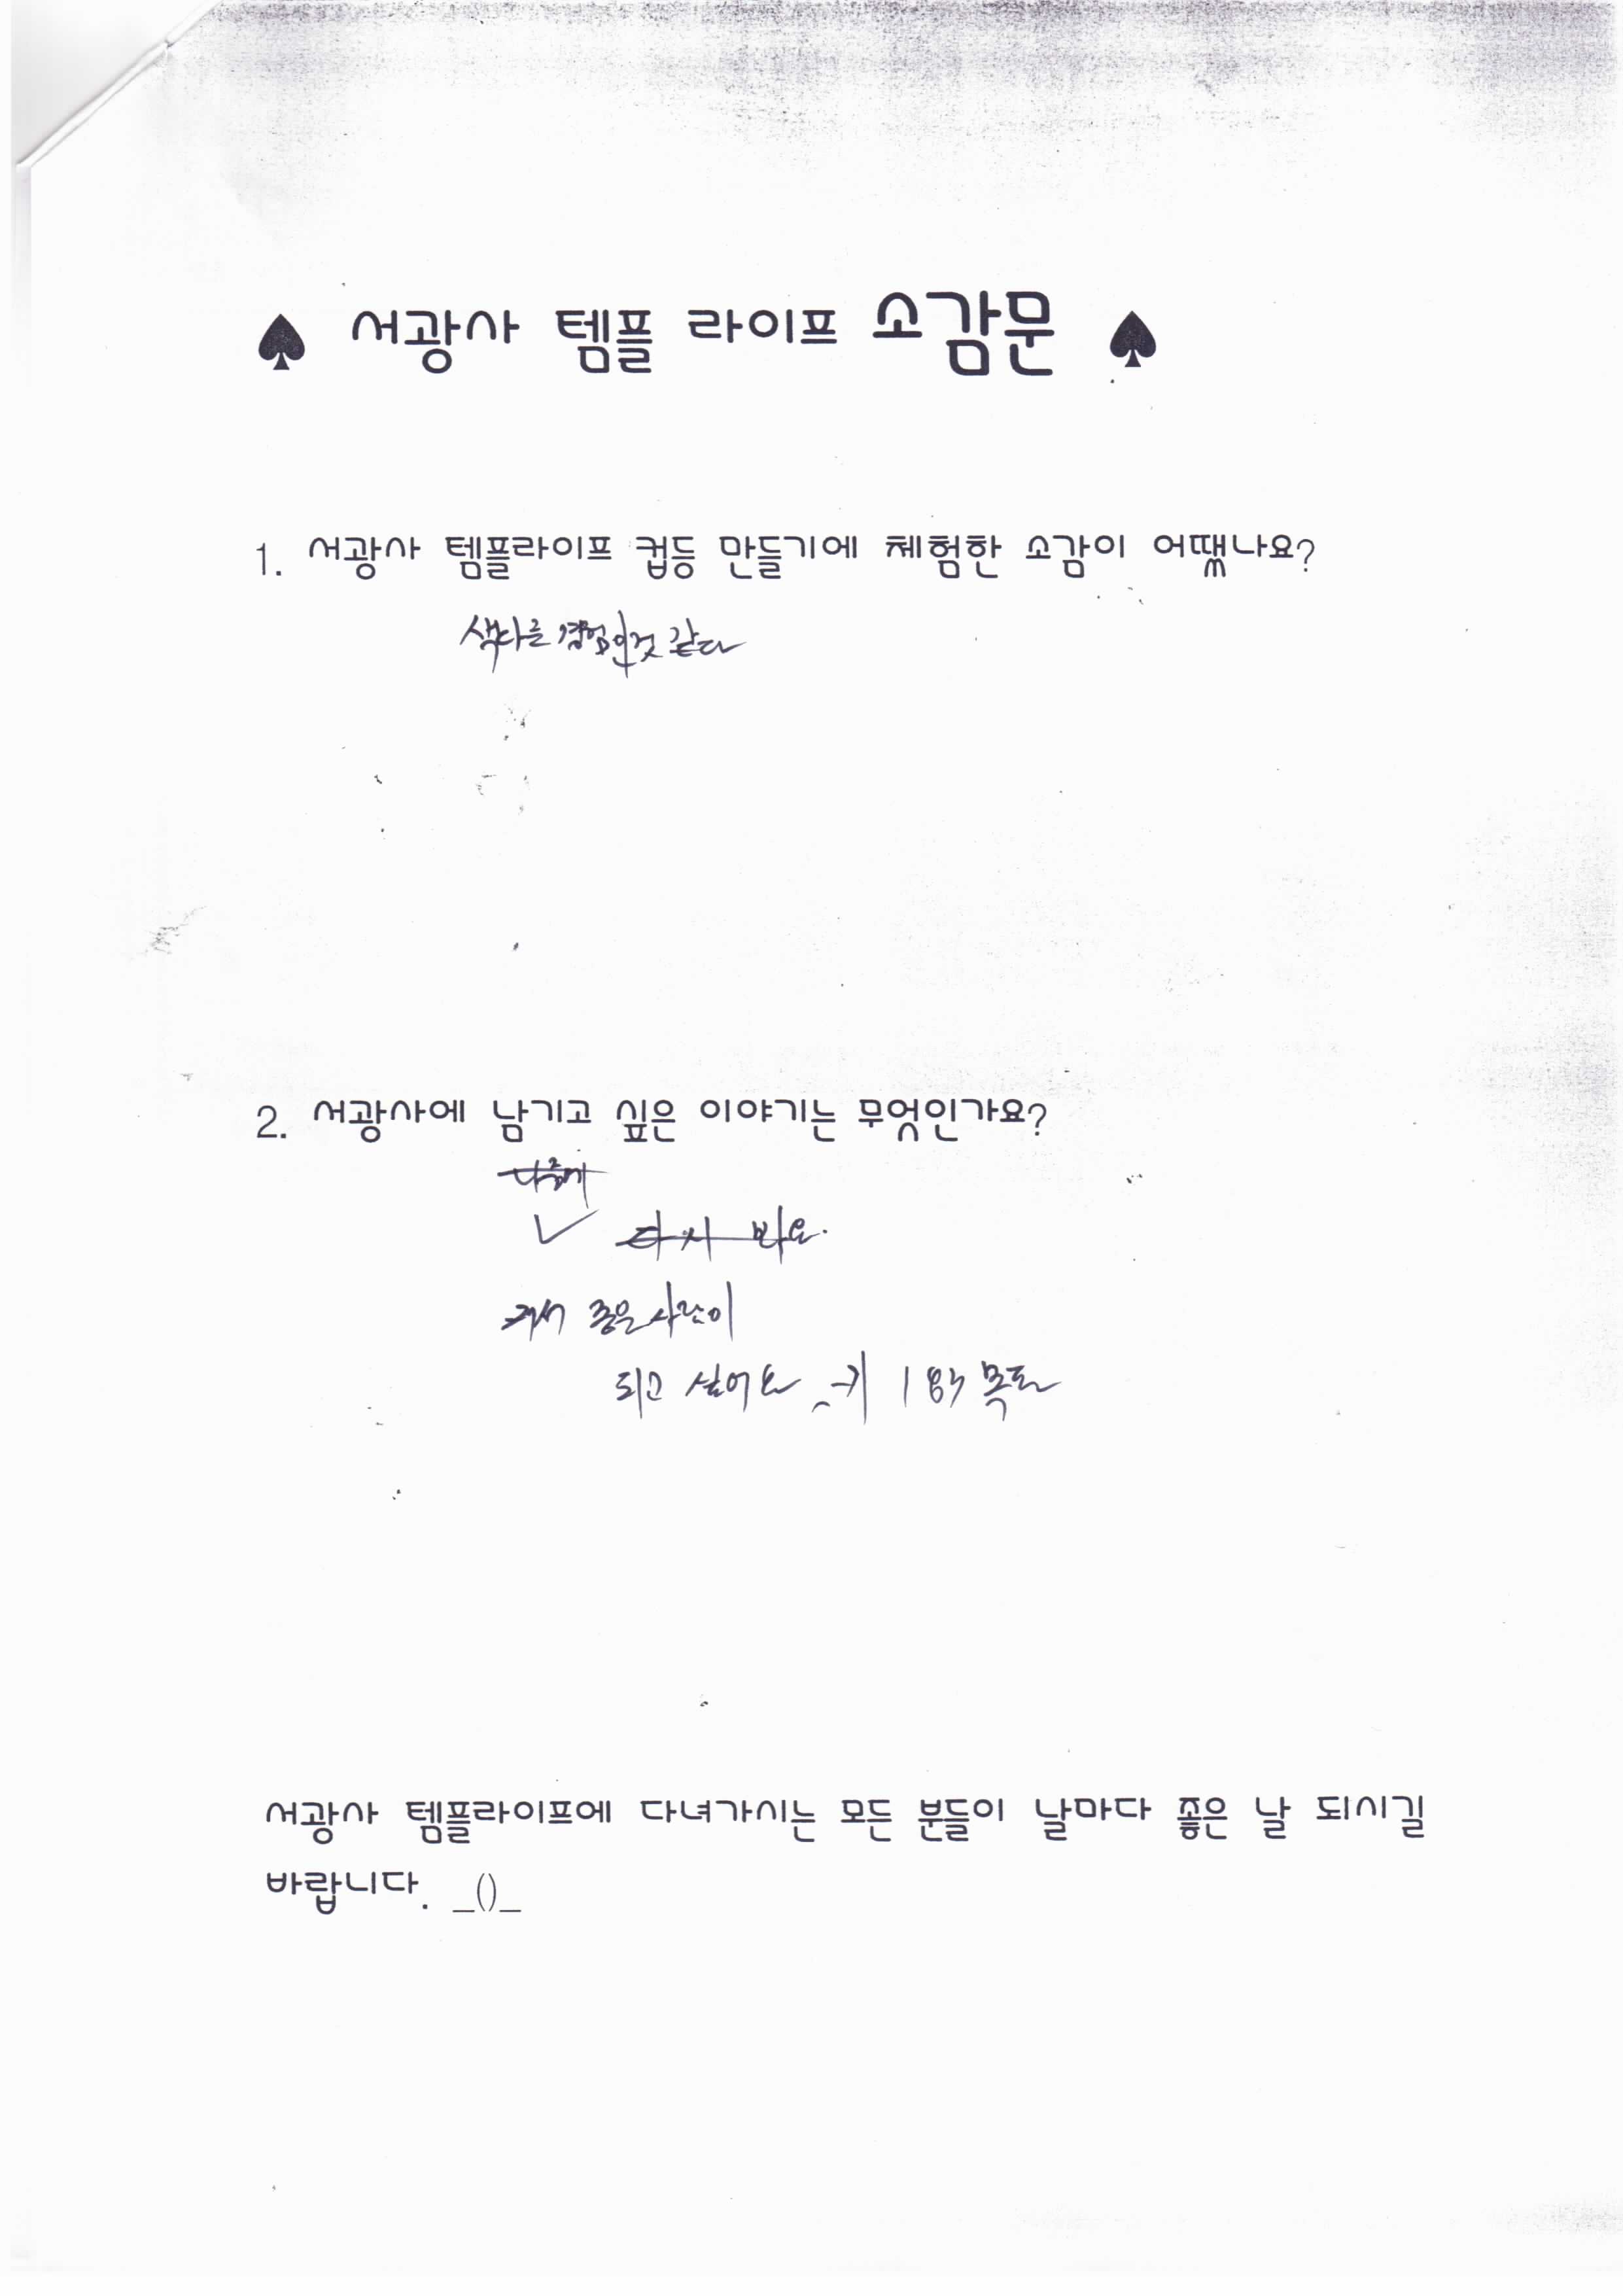 ♠ 서광사 템플 라이프 소감문 ♠
1. 서광사 템플라이프 컵등 만들기에 체험한 소감이 어땠나요?
색다른 경험인것 같다
2. 서광사에 남기고 싶은 이야기는 무엇인가요?
나중에
다시 봐요.
커서 좋은사람이
되고 싶어요 키 183 목표
서광사 템플라이프에 다녀가시는 모든 분들이 날마다 좋은 날 되시길
바랍니다. _()_